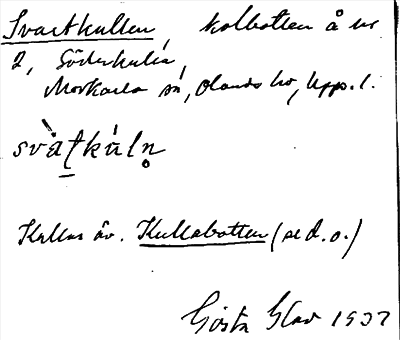 Svartkullen, kolbotten å nr
2, Söderkulla,
Morkarla sn, Olands hd, Upps. l.
svàṭkúlṇ
Kallas äv. Kullabotten (se d. o.)
Gösta Elov 1937